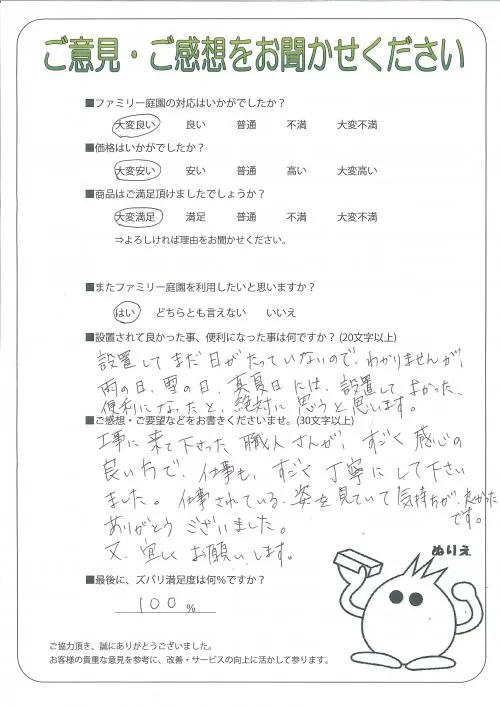 ご意見・ご感想をお聞かせください
■ファミリー庭園の対応はいかがでしたか？
大変良い 良い 普通 不満 大変不満
■価格はいかがでしたか？
大変安い 安い 普通 高い 大変高い
■商品はご満足頂けましたでしょうか？
大変満足 満足 普通 不満 大変不満
⇒よろしければ理由をお聞かせください。
■またファミリー庭園を利用したいと思いますか？
はい どちらとも言えない いいえ
■設置されて良かった事、便利になった事は何ですか？(20文字以上)
設置してまだ日がたっていないので、わかりませんが、
雨の日、雪の日、真夏日には、設置してよかった、
便利になったと、絶対に思うと思います。
■ご感想・ご要望などをお書きくださいませ。(30文字以上)
工事に来て下さった職人さんが、すごく感じの
良い方で、仕事も、すごく丁寧にして下さい
ました。仕事されている姿を見ていて気持ちが良かった
です。
ありがとうございました。
又、宜しくお願いします。
ぬりえ
■最後に、ズバリ満足度は何％ですか？
100 %
ご協力頂き、誠にありがとうございました。
お客様の貴重な意見を参考に、改善・サービスの向上に活かして参ります。